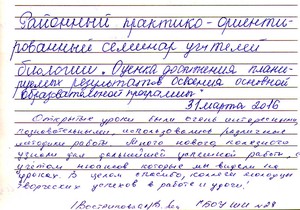 Районный практико-ориенти-
рованный семинар учителей
биологии. "Оценка достижения плани-
руемых результатов освоения основной
образовательной программы"
31 марта 2016
Открытые уроки были очень интересными,
познавательными, использовались различные
методики работы. Много нового полезного
для дальнейшей работы с
учетом которые мы видели на
уроках. В целом спасибо, коллеги
творческих успехов в работе и удачи!
ГБОУ